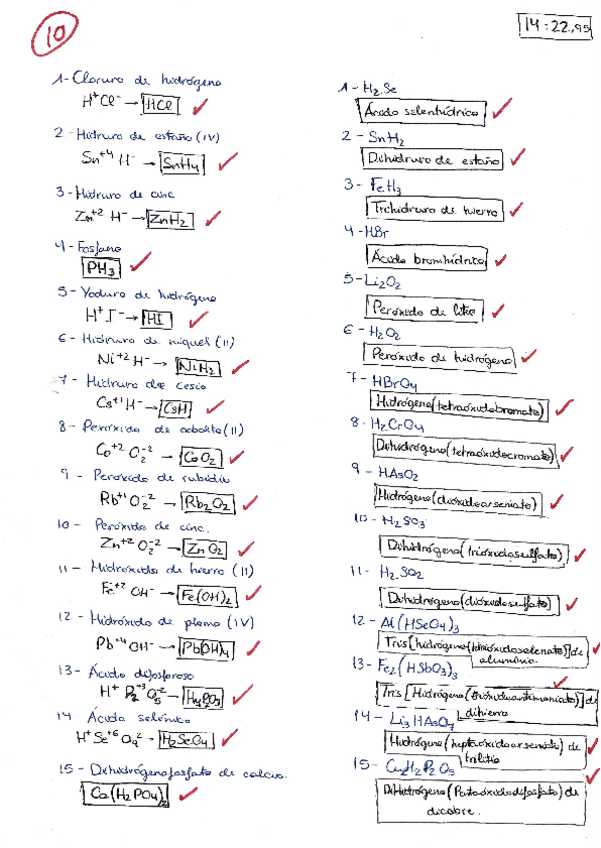 10
14:22,95
1- Cloruro de hidrógeno
H⁺Cl⁻ → HCl
2- Hidruro de estaño (IV)
Sn⁺⁴ H⁻ → SnH4
3- Hidruro de cinc
Zn⁺² H⁻ → ZnH2
4- Fosfano
PH3
5- Yoduro de hidrógeno
H⁺I⁻ → HI
6- Hidruro de níquel (II)
Ni⁺² H⁻ → NiH2
7- Hidruro de cesio
Cs⁺¹H⁻ → CsH
8- Peróxido de cobalto (II)
Co⁺² O2⁻² → CoO2
9- Peróxido de rubidio
Rb⁺¹ O2⁻² → Rb2O2
10- Peróxido de cinc.
Zn⁺² O2⁻² → ZnO2
11- Hidróxido de hierro (II)
Fe⁺² OH⁻ → Fe(OH)2
12- Hidróxido de plomo (IV)
Pb⁺⁴ OH⁻ → Pb(OH)4
13- Ácido difosforoso
H⁺
14 Ácido selénico
H⁺Se⁺⁶ O4⁻² → H2SeO4
15- Dihidrógenofosfato de calcio.
Ca(H2PO4)2
1- H2Se
Ácido selenhídrico
2- SnH2
Dihidruro de estaño
3- FeH3
Trihidruro de hierro
4- HBr
Ácido bromhídrico
5- Li2O2
Peróxido de litio
6- H2O2
Peróxido de hidrógeno
7- HBrO4
Hidrógeno(tetraóxidobromato)
8- H2CrO4
Dihidrógeno(tetraóxidocromato)
9- HAsO2
Hidrógeno(dióxidoarseniato)
10- H2SO3
Dihidrógeno(trióxidosulfato)
11- H2SO2
Dihidrógeno(dióxidosulfato)
12- Al(HSeO4)3
Tris[hidrógeno(tetraóxidoselenato)] de
aluminio.
13- Fe2(HSbO3)3
Tris[Hidrógeno(trióxidoantimoniato)] de
dihierro
14- Li3HAsO7
Hidrógeno(heptaóxidoarseniato) de
trilitio
15- Cu2H2P2O5
DiHidrógeno(Pentaóxidodifosfato) de
dicobre.